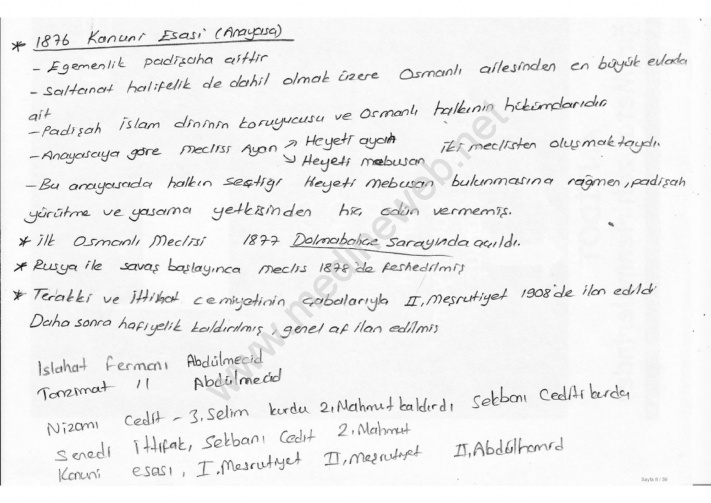 * 1876 Kanuni Esasi (Anayasa)
- Egemenlik padişaha aittir
- Saltanat halifelik de dahil olmak üzere Osmanlı ailesinden en büyük evlada
ait
- Padişah islam dininin koruyucusu ve Osmanlı halkının hükümdarıdır
- Anayasaya göre meclisi Ayan → Heyeti ayan iki meclisten oluşmaktaydı.
→ Heyeti mebusan
- Bu anayasada halkın seçtiği Heyeti mebusan bulunmasına rağmen, padişah
yürütme ve yasama yetkisinden hiç ödün vermemiş.
* ilk Osmanlı Meclisi 1877 Dolmabahçe Sarayında açıldı.
* Rusya ile savaş başlayınca meclis 1878'de feshedilmiş
* Terakki ve ittihat cemiyetinin çabalarıyla II, meşrutiyet 1908'de ilan edildi
Daha sonra hafiyelik kaldırılmış, genel af ilan edilmiş
Islahat fermanı Abdülmecid
Tanzimat " Abdülmecid
Nizamı Cedit - 3. Selim kurdu 2. Mahmut kaldırdı Sekbanı Cediti kurdu
Senedi ittifak, Sekbanı Cedit 2. Mahmut
Kanuni esası, I. Meşrutiyet II, meşrutiyet II, Abdülhamid
www.medineweb.net